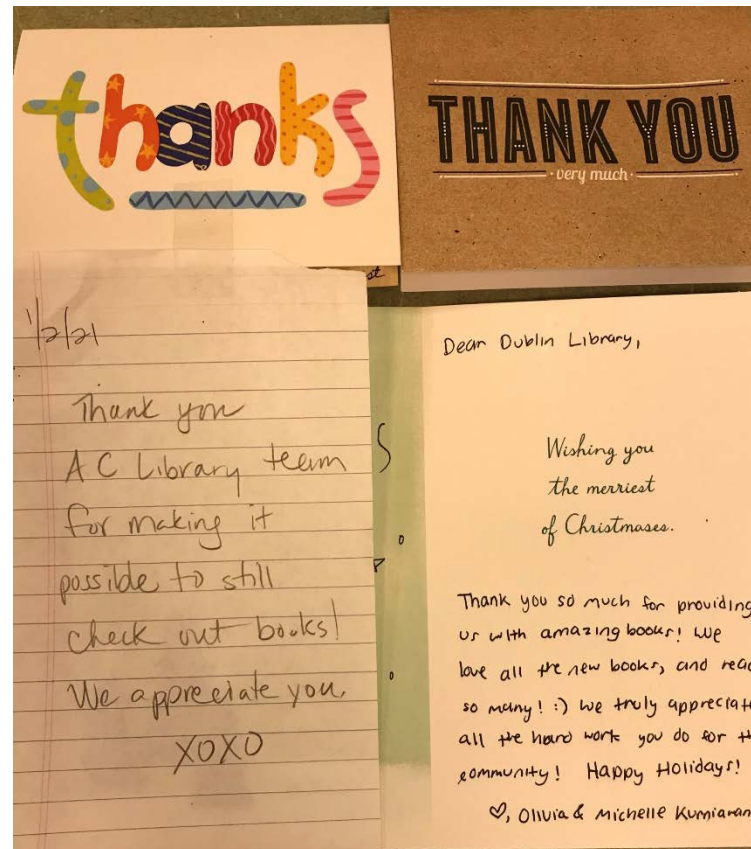 thanks
THANK YOU
very much
st
1/2/21
Thank you
A C Library team
for making it
possible to still
check out books!
We appreciate you.
XOXO
Dear Dublin Library,
Wishing you
the merriest
of Christmases.
Thank you so much for providing
us with amazing books! We
love all the new books, and read
so many! :) We truly appreciat
all the hard work you do for th
community! Happy Holidays!
♡, Olivia & Michelle